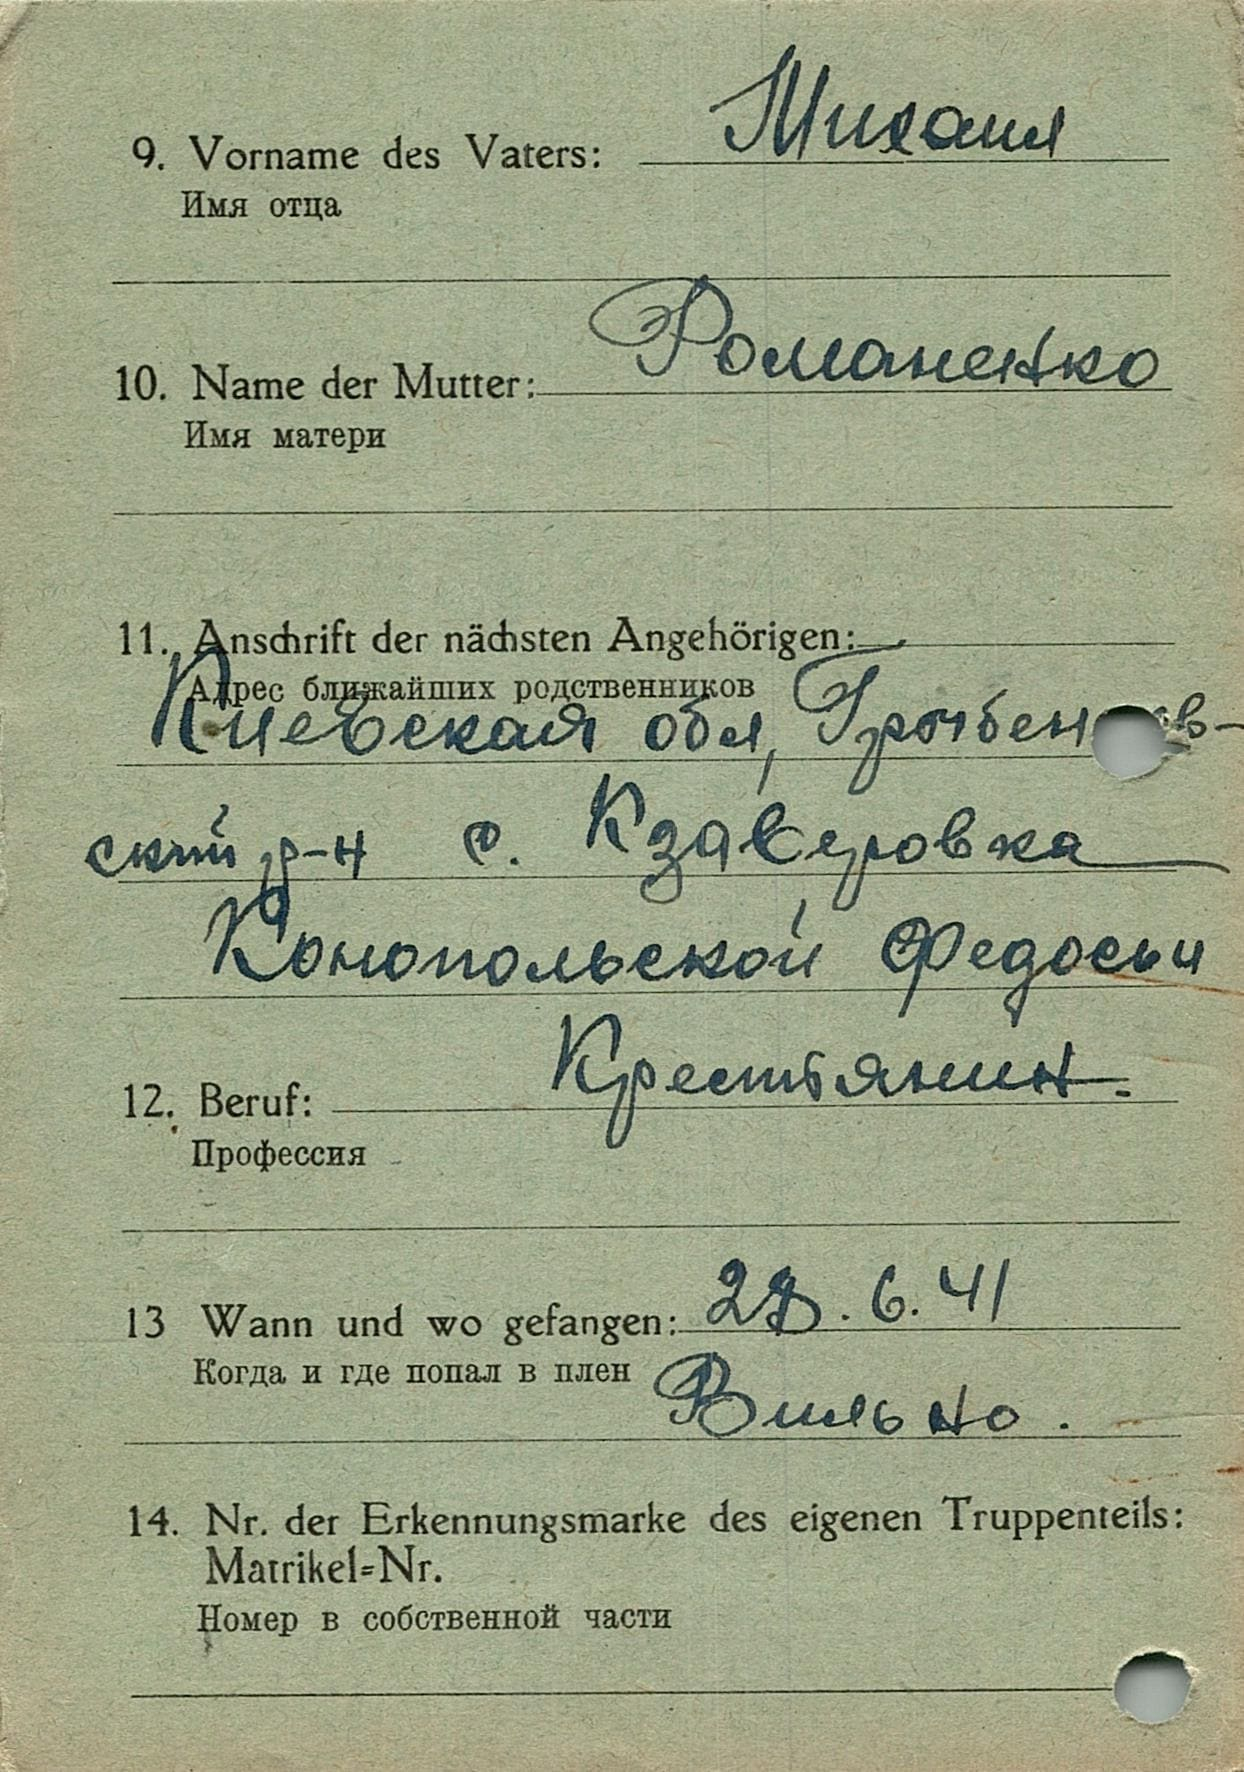 Михаил
9. Vorname des Vaters:
Имя отца
Романенко
10. Name der Mutter:
Имя матери
11. Anschrift der nächsten Angehörigen:
Адрес ближайших родственников
Киевская обл,
ский р-н с. Кзаверовка
Конопольской Федосьи
Крестьянин.
12. Beruf:
Профессия
13 Wann und wo gefangen: 6. 41
Когда и где попал в плен
Вильно.
14. Nr. der Erkennungsmarke des eigenen Truppenteils:
Matrikel=Nr.
Номер в собственной части